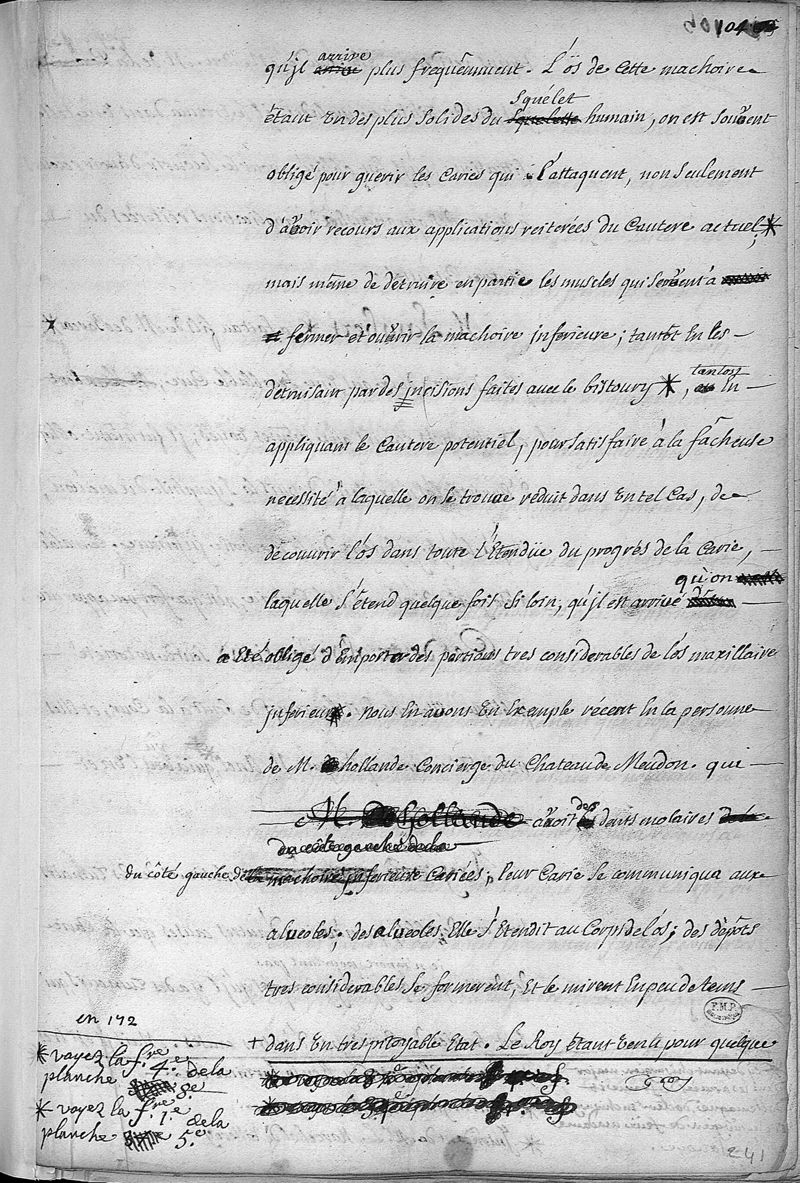 104
qu'jl arrive plus frequemment. L'ôs de cette machoire
étant un des plus solides du Squélet humain, on est souvent
obligé pour guerir les Caries qui l'attaquent, non seulement
d'avoir recours aux applications reiterées du Cautere actuel,*
mais même de détruire en partie les muscles qui servent à
fermer et ouvrir la machoire jnferieure; tantôt en les
détruisant par des jncisions faites avec le bistoury *, tantost en
appliquant le Cautere potentiel, pour satisfaire à la fâcheuse
necessité à laquelle on se trouve reduit dans un tel Cas, de
découvrir l'ós dans toute l'étendüe du progrés de la Carie,
laquelle s'étend quelque fois si loin, qu'jl est arrivé qu'on
a été obligé d'emporter des portions tres considerables de l'ós maxillaire
jnferieur*. nous en avons un exemple récent en la personne
de M. hollande Concierge du Chateau de Meudon. qui
M. de hollande avoit des dents molaires
du côté gauche de la
du côté gauche de la machoire jnferieure Cariées, leur Carie se communiqua aux
alveoles; des alveoles, Elle s'étendit au Corps de l'ós; des dépôts
tres considerables se formerent, et le mirent en peu de tems
+ dans un tres pitoyable état. Le Roy étant venu pour quelque
en 172
* voyez la f.re 4.e de la
planche 8e
* voyez la f.re 1.e de la
planche 5.e
F.M.P.
241